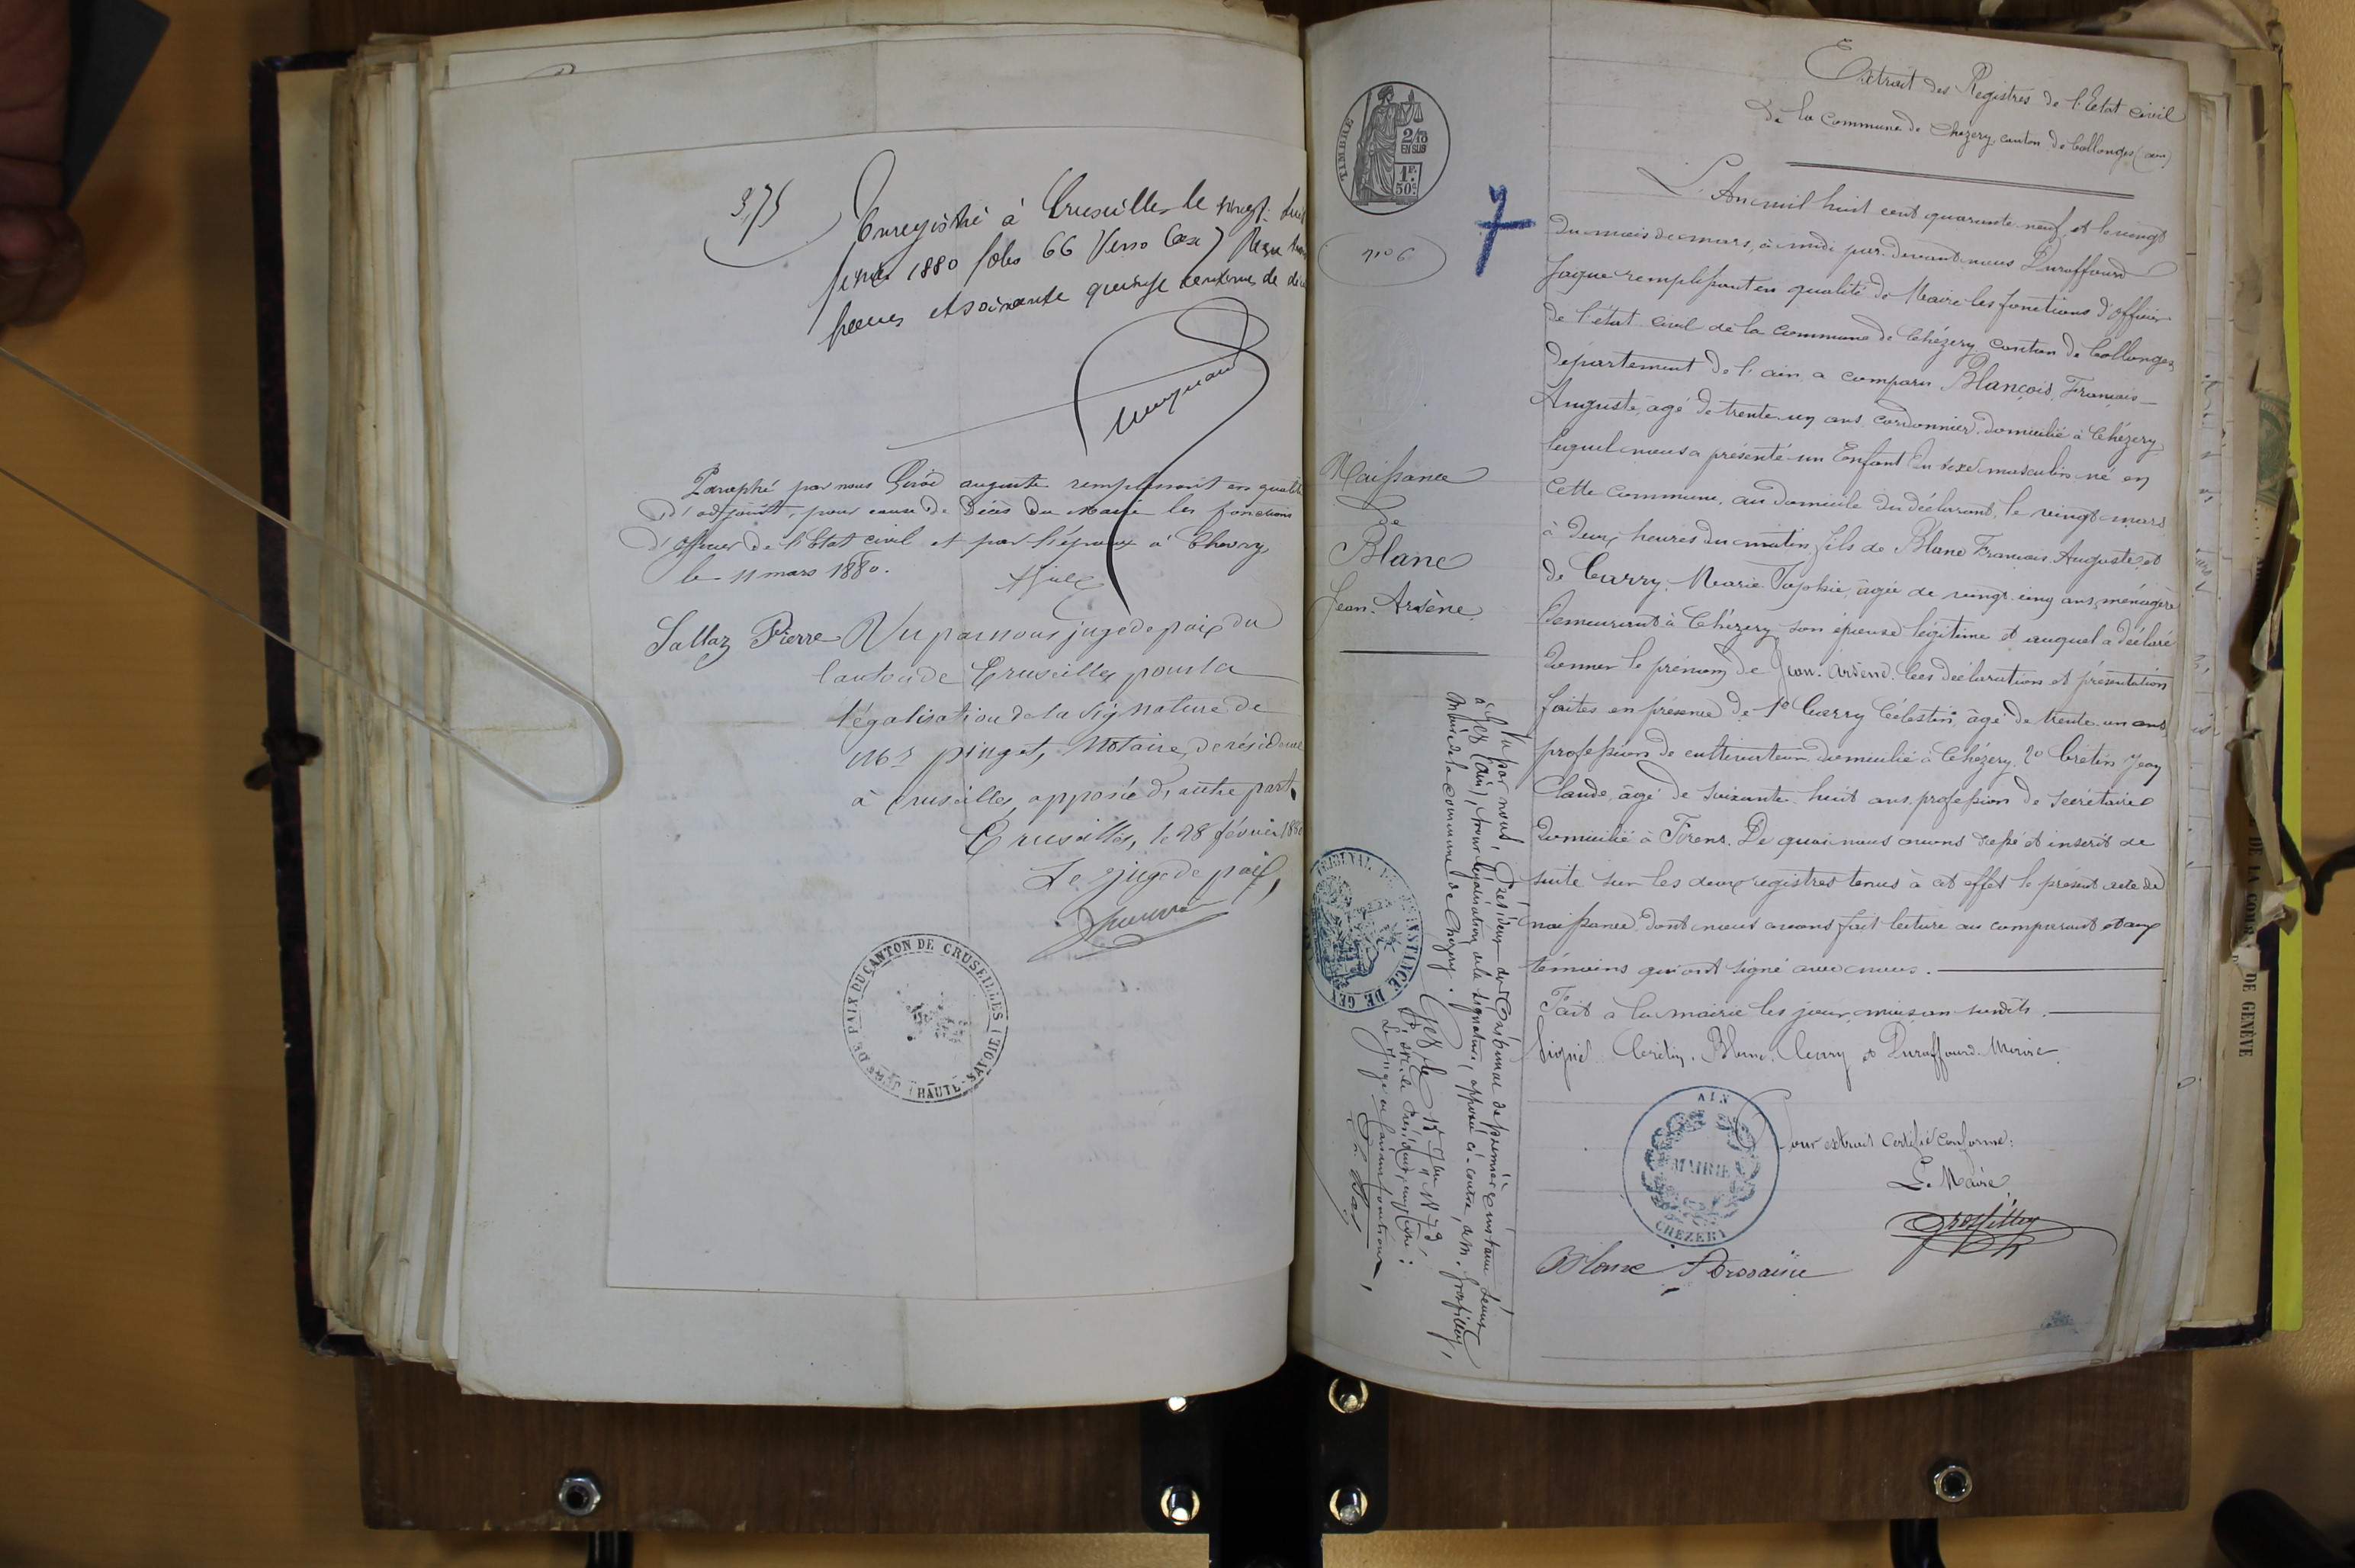 3,75
Enregistré à Cruseilles le vingt huit
février 1880 folio 66 Verso Case 7 Reçu trois
francs et soixante quinze centimes de
Paraphé par nous Girod auguste remplissant en qualité
d'adjoint, pour cause de Décès du Maire les fonctions
d'officier de l'Etat civil et par l'époux à Chevry,
le 11 mars 1880.
Sallaz Pierre
Vu par nous juge de paix du
Canton de Cruseilles pour la
légalisation de la signature de
Me pinget, Notaire, de résidence
à Cruseilles, apposée d'autre part.
Cruseilles, le 28 février 1880
Le juge de paix,
JUST. DE PAIX DU CANTON DE CRUSEILLES (HAUTE-SAVOIE)
TIMBRE
2/10
EN SUS
1F.
50c.
no 6
7
Naissance
de
Blanc
Jean-Arsène.
Extrait des Registres de l'Etat civil
De la Commune de Chézery, canton de Collonges (ain)
L'An mil huit cent quarante neuf, et le vingt
du mois de mars, à midi par-devant nous Duraffourd
Jaque remplissant en qualité de Maire les fonctions d'officier
de l'état civil de la Commune de Chézery canton de Collonges,
département de l'ain a comparu Blancois, François-
Auguste, âgé de trente un ans, cordonnier domicilié à Chézery
lequel nous a présenté un Enfant du sexe masculin né en
Cette Commune, au domicile du déclarant, le vingt mars
à deux heures du matin, fils de Blanc François Auguste, et
de Curry, Marie Sophie, âgée de vingt cinq ans, ménagère
Demeurant à Chézery son épouse légitime et auquel a déclaré
donner le prénom de Jean-Arsène. Ces déclarations et présentation
faites en présence de 1o Curry Célestin, âgé de trente-un ans,
profession de cultivateur domicilié à Chézery, 2o Crétin Jean
Claude, âgé de soixante huit ans, profession de Secrétaire
domicilié à Forens. De quoi nous avons rédigé et inscrit de
suite sur les deux registres tenus à cet effet le présent acte de
naissance dont nous avons fait lecture au comparant et aux
témoins qui ont signé avec nous.
Fait à la mairie les jour, mois, an susdits.
Signé Crétin, Blanc, Curry et Duraffourd Maire.
Pour extrait Certifié Conforme:
Le Maire
AIN
MAIRIE
CHEZERY
Grosfilley
Blanc Arssaine
Vu par nous, Président du Tribunal de première instance séant
à Gex (Ain), pour légalisation de la signature, apposée ci-contre, de M. Grosfilley,
Maire de la commune de Chézery.
TRIBUNAL DE 1ERE INSTANCE DE GEX
DE LA COUR
DE GENÈVE